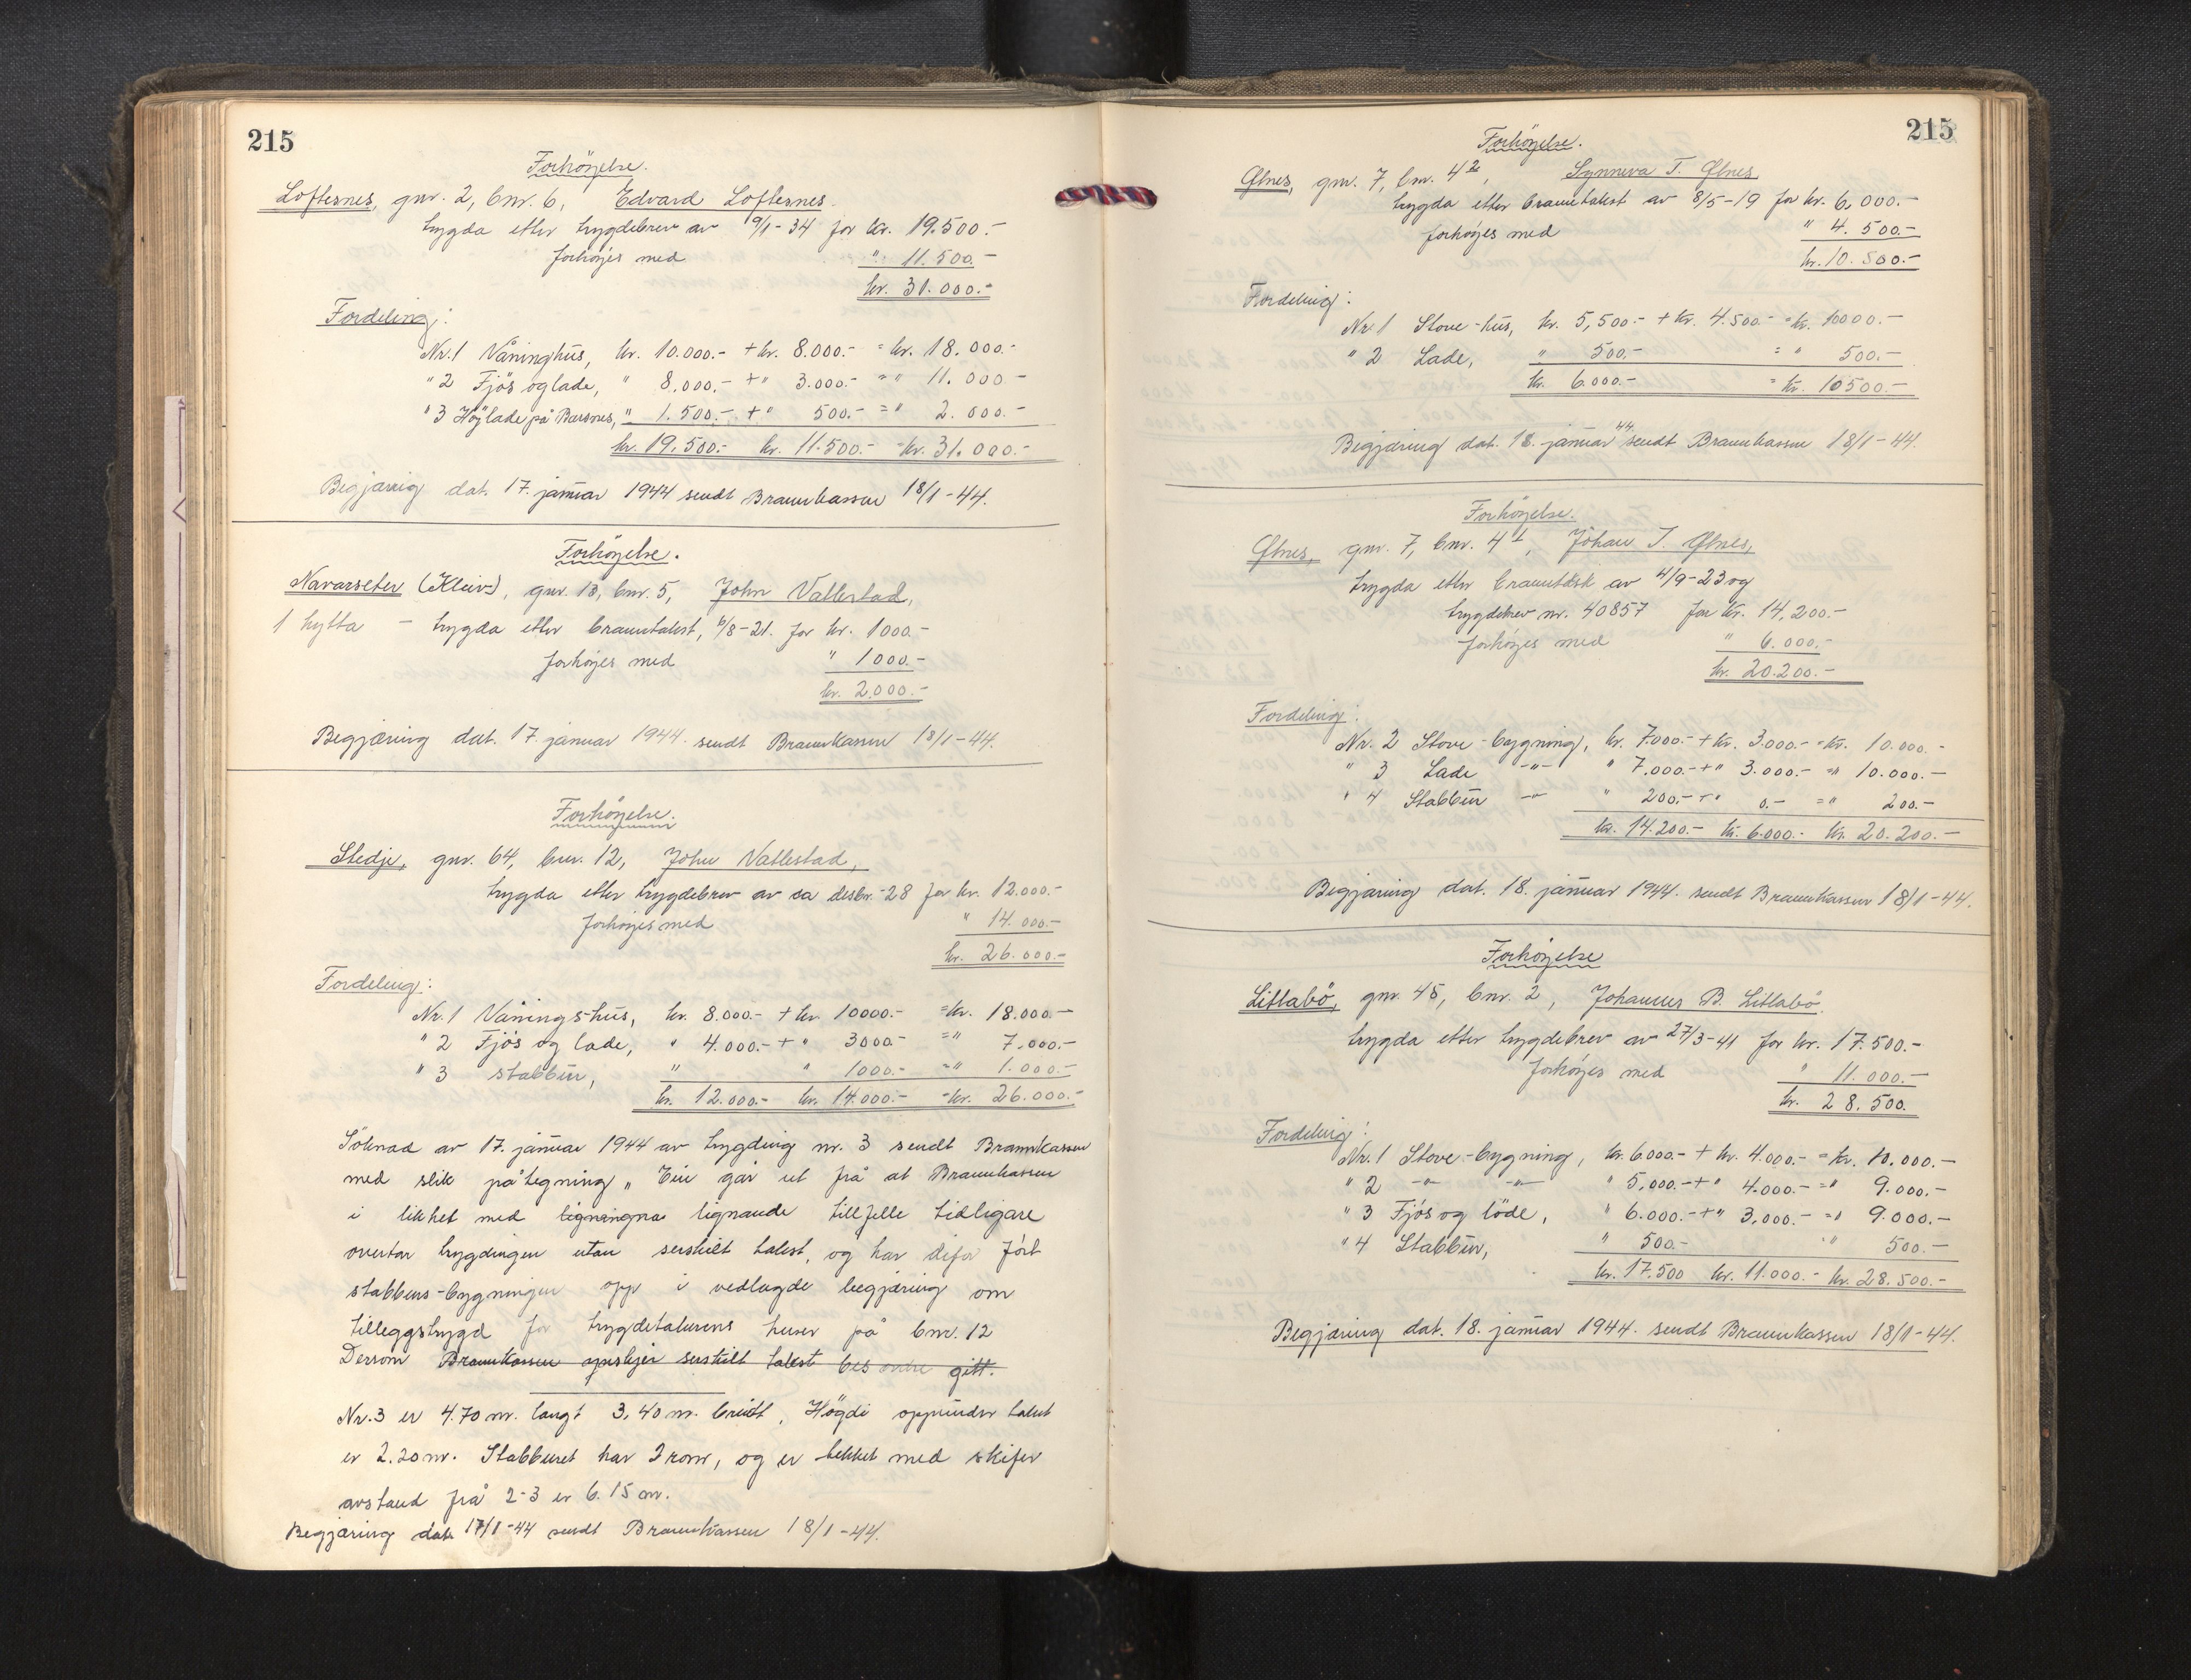 215
Forhöyelse.
Loftesnes, gnr. 2, bnr. 6, Edvard Loftesnes.
trygda etter trygdebrev av 9/1-34 for kr. 19.500.-
forhöyes med " 11.500.-
kr. 31.000.-
Fordeling:
Nr. 1 Våninghus, kr. 10.000.- + kr. 8.000.- = kr. 18.000.-
" 2 Fjös og lade, " 8.000.- + " 3.000.- = " 11.000-
" 3 Höylade på Barsnes, " 1.500.- + " 500.- = " 2.000.-
kr. 19.500.- kr. 11.500.- = kr. 31.000.-
Begjæring dat. 17. januar 1944 sendt Brannkassen 18/1-44.
Forhöyelse.
Navarseter (Kleiv), gnr. 13, bnr. 5, John Vallestad,
1 hytta - trygda etter branntakst, 6/8-21. for kr. 1000.-
forhöyes med " 1000.-
kr. 2.000.-
Begjæring dat. 17. januar 1944. sendt Brannkassen 18/1-44.
Forhöyelse.
Stedje, gnr. 64, bnr. 12, John Vallestad,
trygda etter trygdebrev av ca desbr. -28 for kr. 12.000.-
forhöyes med " 14.000.-
kr. 26.000.-
Fordeling:
Nr. 1 Vånings-hus, kr. 8.000.- + kr 10000.- = kr. 18.000.-
" 2 Fjös og lade, " 4.000.- + " 3000.- = " 7.000.-
" 3 stabbur, " " 1000.- = " 1.000.-
kr. 12.000.- kr. 14.000.- = kr. 26.000.-
Söknad av 17. januar 1944 av trygding nr. 3 sendt Brannkassen
med slik påtegning " Ein går ut frå at Brannkassen
i likhet med lignande tillfelle tidligare
overtar trygdingen utan serskilt takst, og har difor fört
stabburs-bygningen opp i vedlagde begjæring om
tilleggstrygd for trygdetakerens huser på bnr. 12
Dersom Brannkassen önskjer serskilt takst bes ordre gitt.
Nr. 3 er 4.70 m. langt 3,40 m. breidt, Högdi oppunder taket
er 2.20 m. Stabburet har 2 rom, og er tekket med skifer
avstand frå 2-3 er 6.15 m.
Begjæring dat. 17/1-44 sendt Brannkassen 18/1-44.
215
Forhöyelse.
Ølnes, gnr. 7, bnr. 4², Synneva T. Ølnes
trygda etter branntakst av 8/5-19 for kr. 6.000.-
forhöyes med " 4.500.-
kr. 10.500.-
Fordeling:
Nr 1 Stove-hus, kr. 5,500.- + kr. 4.500.- = kr. 10000.-
" 2 Lade, " 500.- = " 500.-
kr. 6.000.- = kr. 10500.-
Begjæring dat. 18. januar 44 sendt Brannkassen 18/1-44.
Forhöyelse.
Ølnes, gnr. 7, bnr. 4¹, Johan T. Ølnes,
trygda etter branntakst av 4/9-23 og
trygdebrev nr. 40857 for kr. 14,200.-
forhöyes med " 6.000.-
kr. 20.200.-
Fordeling:
Nr. 2 Stove-bygning, kr. 7.000.- + kr. 3.000.- = kr. 10.000.-
" 3 Lade -"- " 7.000.- + " 3.000.- = " 10.000.-
" 4 Stabbur -"- " 200.- + " 0.- = " 200.-
kr. 14.200.- kr. 6.000.- kr. 20.200.-
Begjæring dat. 18. januar 1944. sendt Brannkassen 18/1-44.
Forhöyelse
Litlabö, gnr. 45, bnr. 2, Johannes B. Litlabö.
trygda etter trygdebrev av 27/3-41 for kr. 17.500.-
forhöyes med " 11.000.-
kr. 28.500.
Fordeling:
Nr. 1 Stove-bygning, kr. 6.000.- + kr. 4.000.- = kr. 10.000.-
" 2 -"- -"- " 5,000.- + " 4.000.- = " 9.000.-
" 3 Fjös og löde, " 6.000.- + " 3,000.- = " 9.000.-
" 4 Stabbur, " 500.- " 500.-
kr. 17.500 kr. 11.000.- kr. 28.500.-
Begjæring dat. 18. januar 1944. sendt Brannkassen 18/1-44.